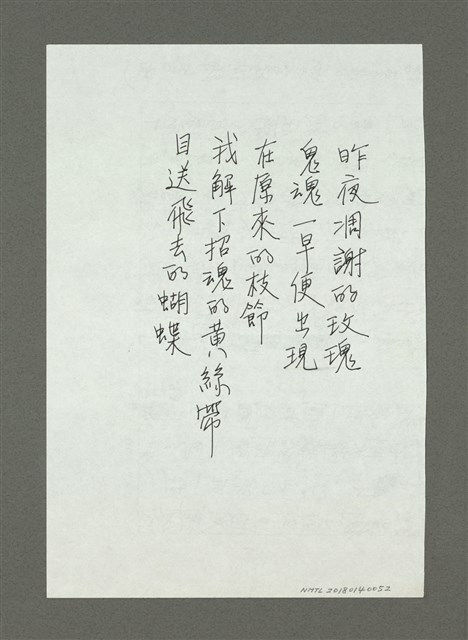 昨夜凋謝的玫瑰
鬼魂一早便出現
在原來的枝節
我解下招魂的黃絲帶
目送飛去的蝴蝶
NMTL20180140052